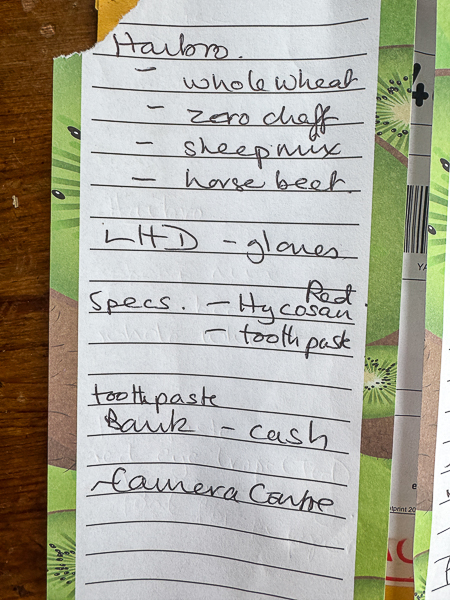 Harbro.
- whole wheat
- zero chaff
- sheep mix
- horse beet.
LHD - gloves
Red.
Specs. - Hycosan
- toothpaste
toothpaste
Bank - cash
-Camera Centre
YA
e
print 20